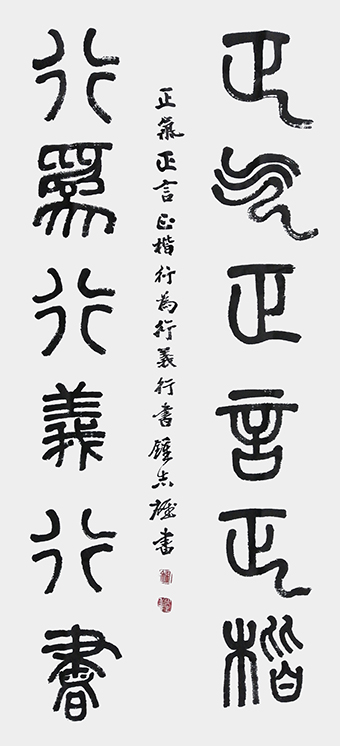 正气正言正楷
正氣正言正楷行為行義行書鍾志書
行爲行義行書